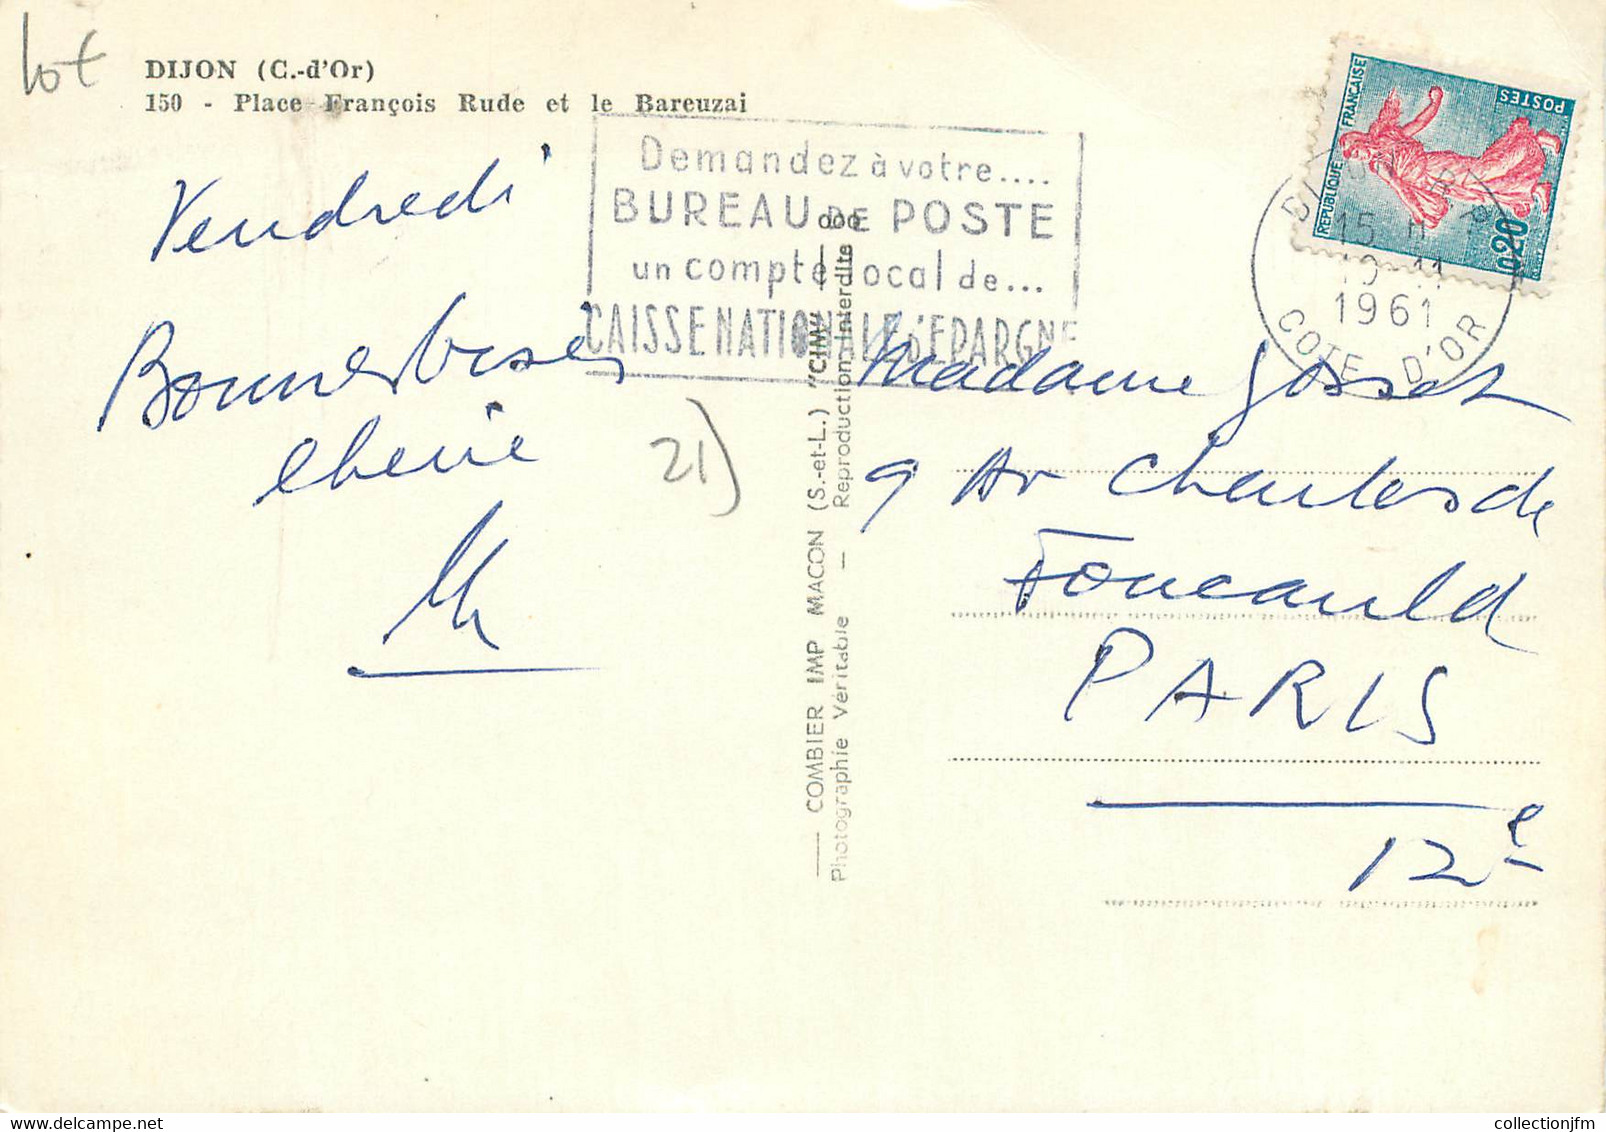 lot
DIJON (C.-d'Or)
150 - Place François Rude et le Bareuzai
Demandez à votre....
BUREAU DE POSTE
un compte local de...
CAISSE NATIONALE D'EPARGNE
REPUBLIQUE FRANÇAISE
POSTES
0,20
DIJON R.P.
15 H
11
1961
COTE D'OR
Vendredi
Bonnes bises
cherie
21)
COMBIER IMP MACON (S.-et-L.) "CIM"
Photographie Véritable — Reproduction interdite
Madame Gosset
9 Av Charles de
Foucauld
PARIS
12e
collectionjfm